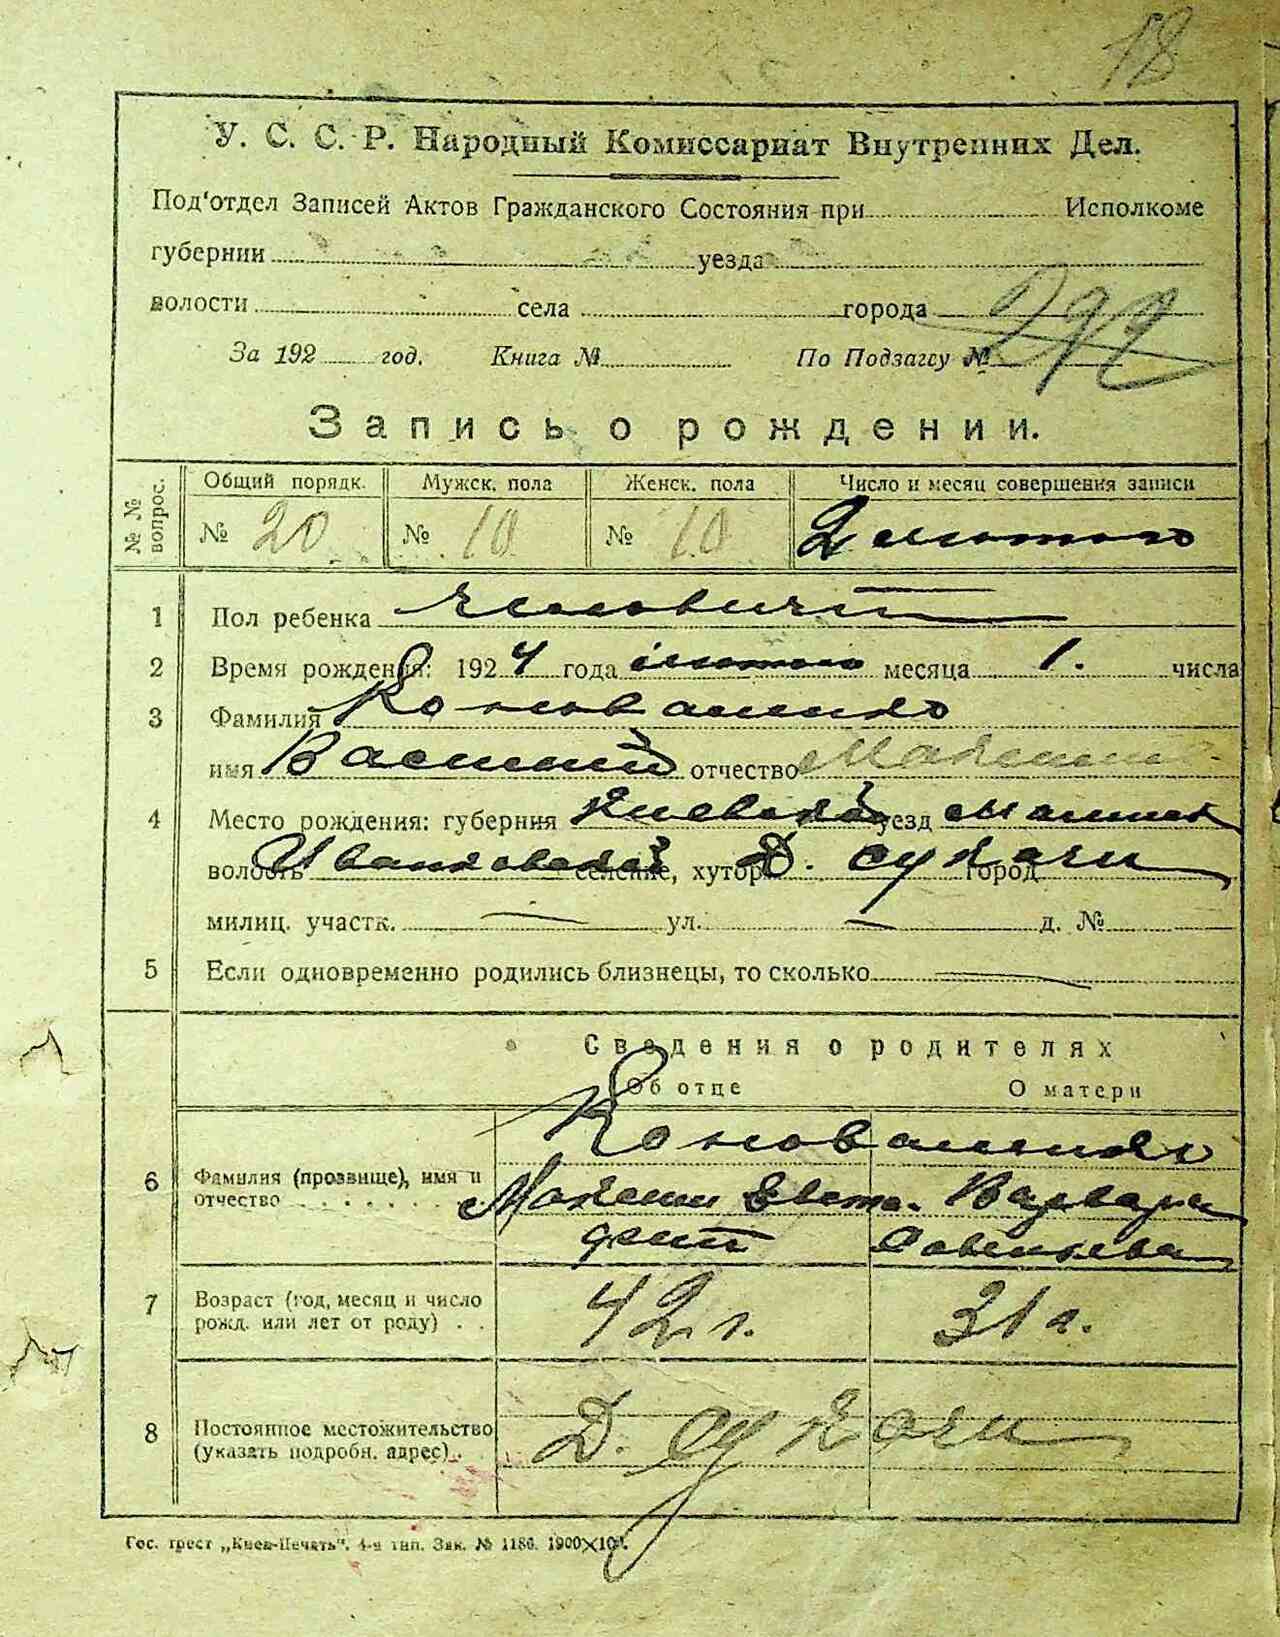 18
У. С. С. Р. Народный Комиссариат Внутренних Дел.
Под'отдел Записей Актов Гражданского Состояния при Исполкоме
губернии уезда
волости села города
За 192 год. Книга № По Подзагсу № 299
Запись о рождении.
№ № вопрос. Общий порядк. Мужск. пола Женск. пола Число и месяц совершения записи
№ 20 № 10 № 10 2 лютого
1 Пол ребенка
2 Время рождения: 1924 года лютого месяца 1. числа
3 Фамилия Коноваленко
имя Василий отчество Максим
4 Место рождения: губерния Киевской уезд Малинск
волость Иванковской селение, хутор Д. Сукачи город
милиц. участк. — ул. — д. №
5 Если одновременно родились близнецы, то сколько —
Сведения о родителях
Об отце О матери
Коноваленко
6 Фамилия (прозвище), имя и отчество Максим Варвара
7 Возраст (год, месяц и число рожд. или лет от роду) 42 г. 31 г.
8 Постоянное местожительство (указать подробн. адрес) Д. Сукачи
Гос. трест „Киев-Печать". 4-я тип. Зак. № 1186. 1900×100.